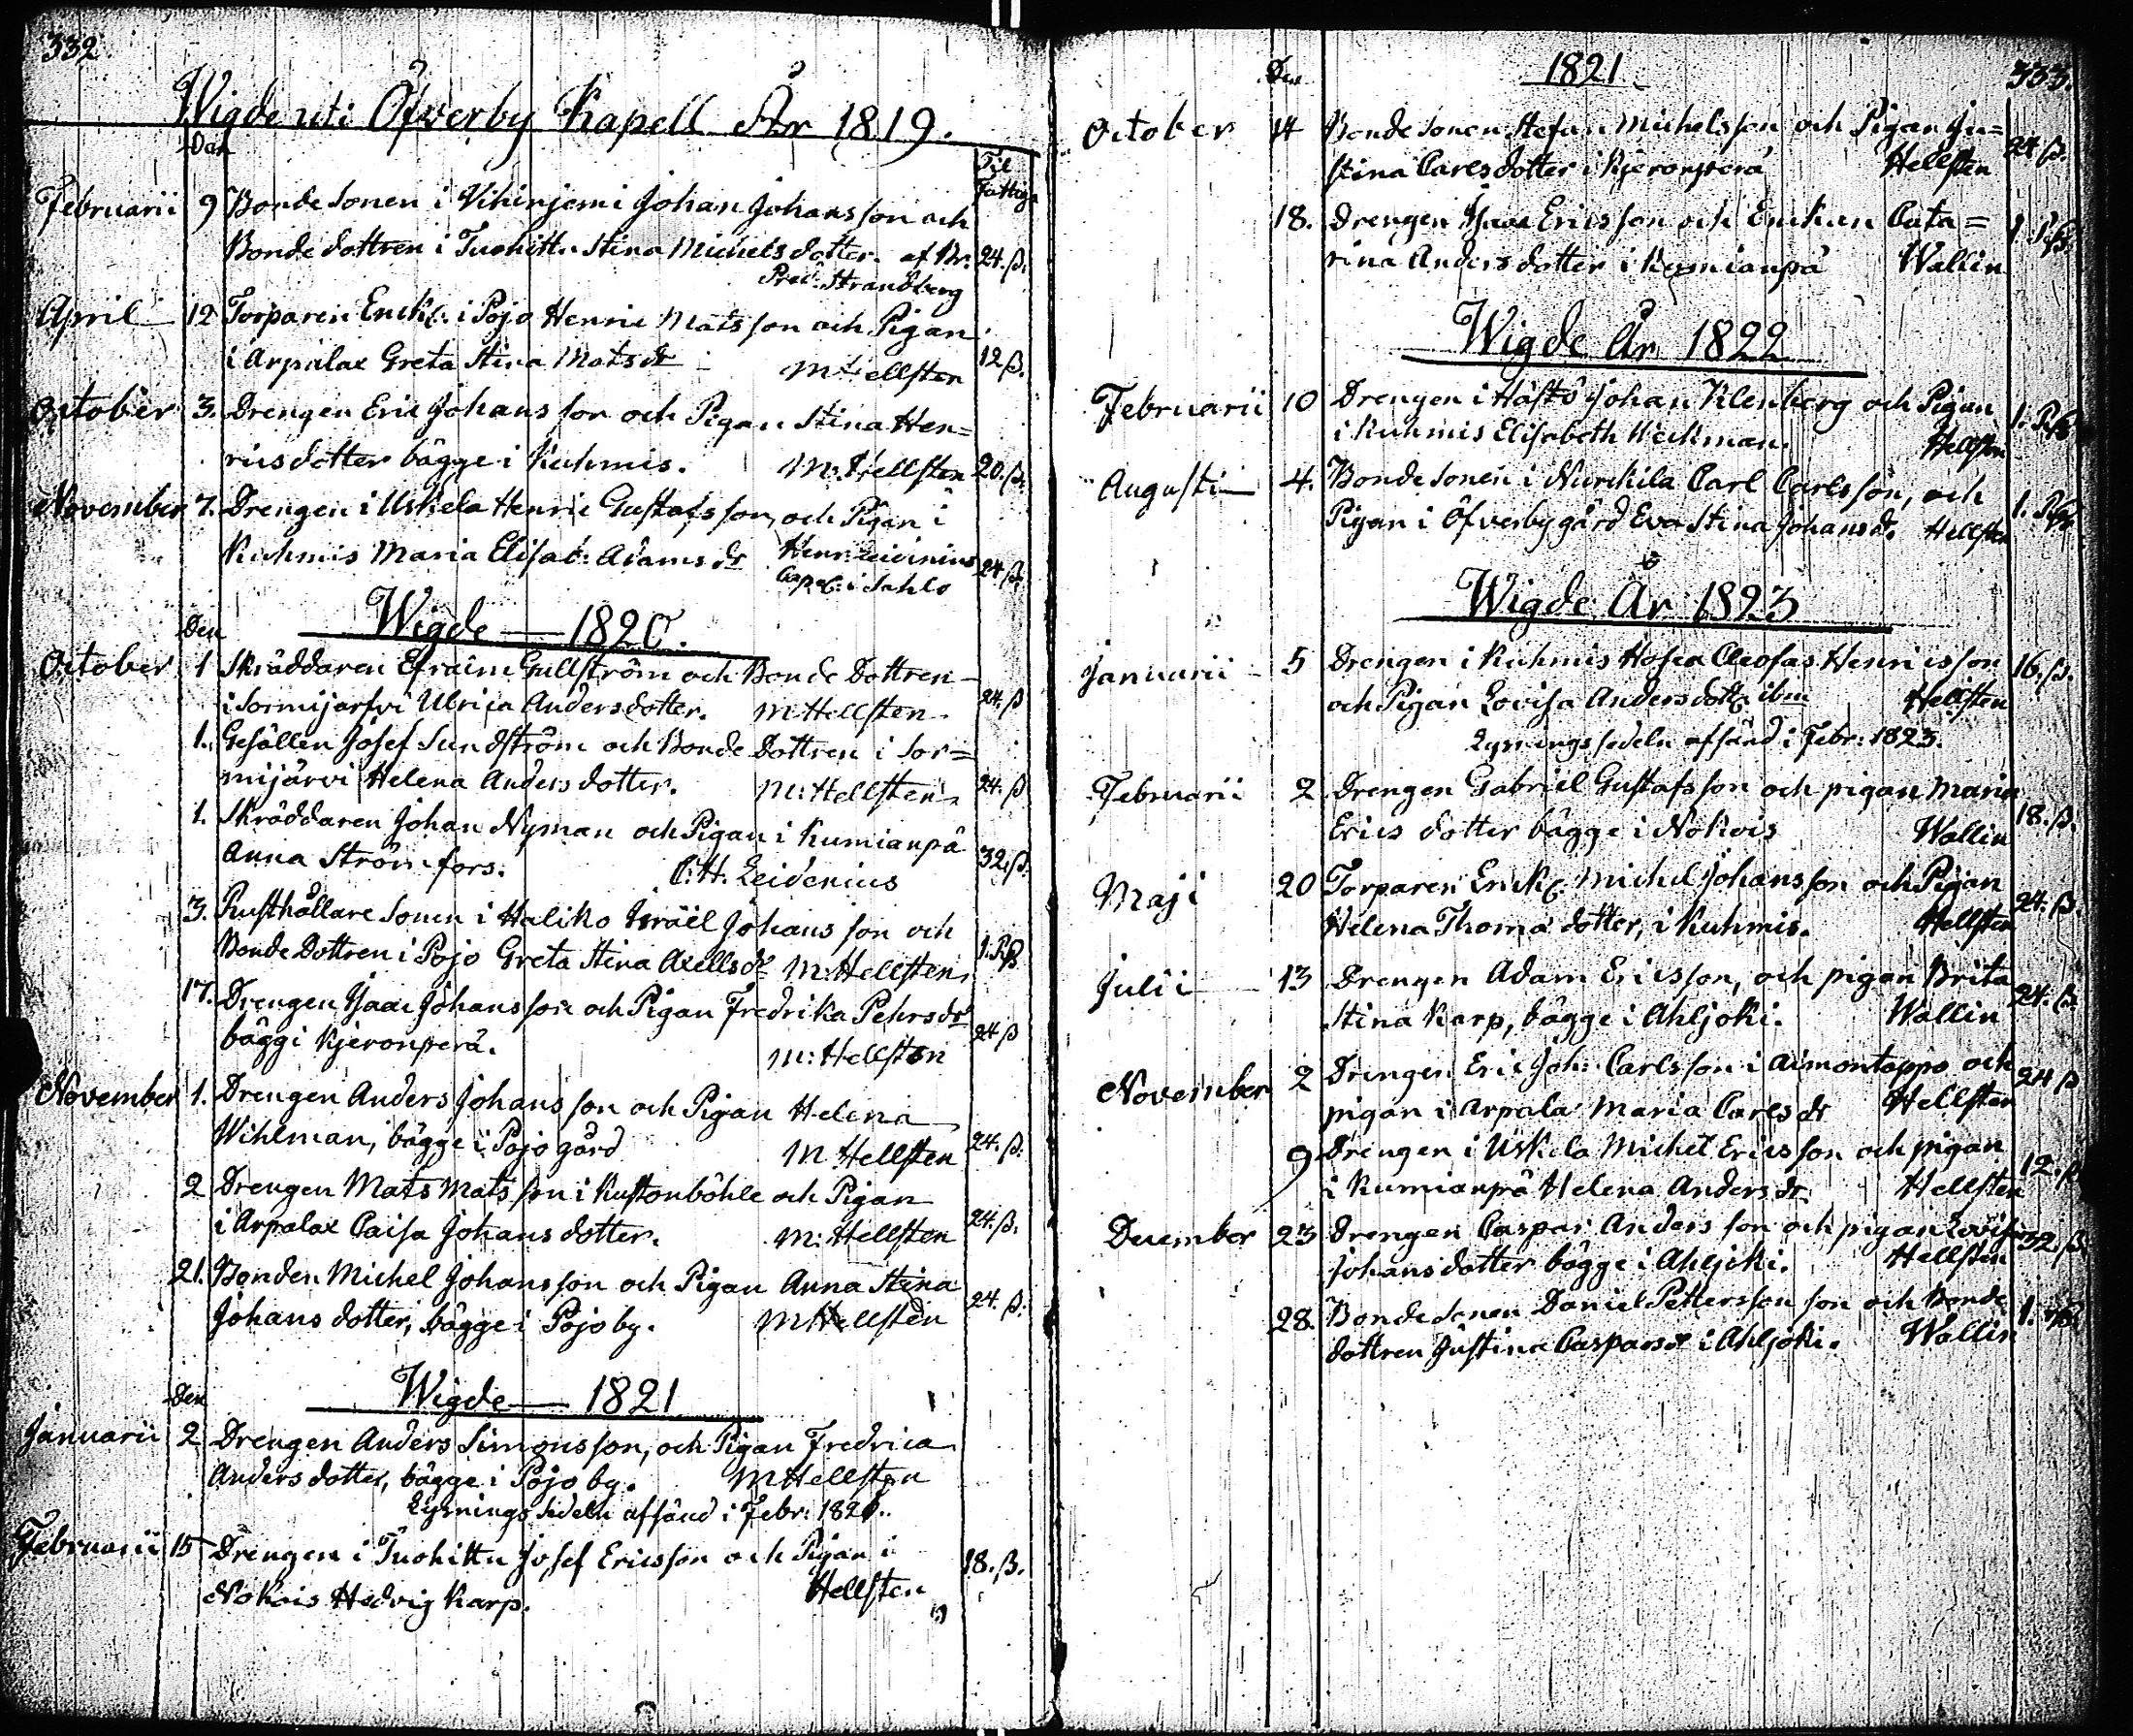 332.
Wigde uti Öfverby Kapell År 1819.
Dan
Til
fattige
Februarii 9 Bonde Sonen i Vihinjemi Johan Johansson och
Bonde dottren i Tuohittu Stina Michelsdotter. af Br: 24. ß.
Pred: Strandberg
April 12 Torparen Enckl. i Pojo Henric Matsson och Pigan
i Arpalax Greta Stina Matsdr M Hellsten 12 ß.
October 3. Drengen Eric Johansson och Pigan Stina Hen=
ricsdotter bägge i Kuhmis. M: Hellsten 20. ß.
November 7. Drengen i Uskela Henric Gustafsson, och Pigan i
Kuhmis Maria Elisab: Adamsdr Henr: Leidenius 24. ß.
Capel: i Sahlo
Wigde 1820.
Den
October 1 Skräddaren Efraim Gullström och Bonde Dottren
i Sormijärfvi Ulrica Andersdotter. M Hellsten. 24. ß
1. Gesällen Josef Sundström och Bonde Dottren i Sor=
mijärvi Helena Andersdotter. M: Hellsten 24. ß
1. Skräddaren Johan Nyman och Pigan i Kumianpä
Anna Strömfors. C. H. Leidenius 32. ß.
3. Rusthållare Sonen i Haliko Israël Johansson och
Bonde Dottren i Pojo Greta Stina Axellsdr M: Hellsten 1. Rß
17. Drengen Isaac Johansson och Pigan Fredrika Pehrsdr
bäggi Kjeronperä. M: Hellsten 24 ß
November 1. Drengen Anders Johansson och Pigan Helena
Wihlman, bägge i Pojo gård M Hellsten 24. ß.
2 Drengen Mats Matsson i Kustonböhle och Pigan
i Arpalax Caisa Johansdotter. M: Hellsten 24. ß.
21. Bonden Michel Johansson och Pigan Anna Stina
Johansdotter, bägge i Pojo by. M Hellsten 24. ß.
Wigde 1821
Den
Januarii 2 Drengen Anders Simonsson, och Pigan Fredrica
Andersdotter, bägge i Pojo by. M Hellsten
Lysnings sedeln afsänd i Febr: 1821.
Februarii 15 Drengen i Tuohittu Josef Ericsson och Pigan i 18. ß.
Nokois Hedvig Karp. Hellsten
333.
Den 1821
October 14 Bonde Sonen Stefan Michelsson och Pigan Ju=
stina Carlsdotter i Kjeronperä Hellsten 24 ß.
18. Drengen Isaac Ericsson och Enckan Cata=
rina Andersdotter i Kumianpä Wallin 1. Rß.
Wigde År 1822
Februarii 10 Drengen i Hästö Johan Klenberg och Pigan
i Kuhmis Elisabeth Weckman. Hellsten 1. Rß
Augusti 4. Bonde Sonen i Nurckila Carl Carlsson, och
Pigan i Öfverby gård Eva Stina Johansdr. Hellsten 1. Rß.
Wigde År 1823
Januarii 5 Drengen i Kuhmis Hosea Cleofas Henricsson 16. ß.
och Pigan Lovisa Andersdott. ibm Hellsten
Lysnings sedeln afsänd i Febr: 1823.
Februarii 2 Drengen Gabriel Gustafsson och pigan Maria
Erics dotter bägge i Nokois Wallin 18. ß.
Maji 20 Torparen Enckl. Michel Johansson och Pigan
Helena Thoma dotter, i Kuhmis. Hellsten 24. ß.
Julii 13 Drengen Adam Ericsson, och pigan Brita
Stina Karp, bägge i Ahljoki. Wallin 24. ß.
November 2 Drengen Eric Joh: Carlsson i Aimontappo och 24 ß
pigan i Arpala Maria Carlsdr Hellsten
9 Drengen i Uskela Michel Ericsson och pigan 12. ß
i Kumianpä Helena Andersdr. Hellsten
December 23 Drengen Caspar Andersson och pigan Lovisa 32. ß.
Johansdotter bägge i Ahljoki. Hellsten
28. Bonde Sonen Daniel Pettersson son och Bonde 1. Rß.
dottren Justina Caspersdr i Ahljoki. Wallin